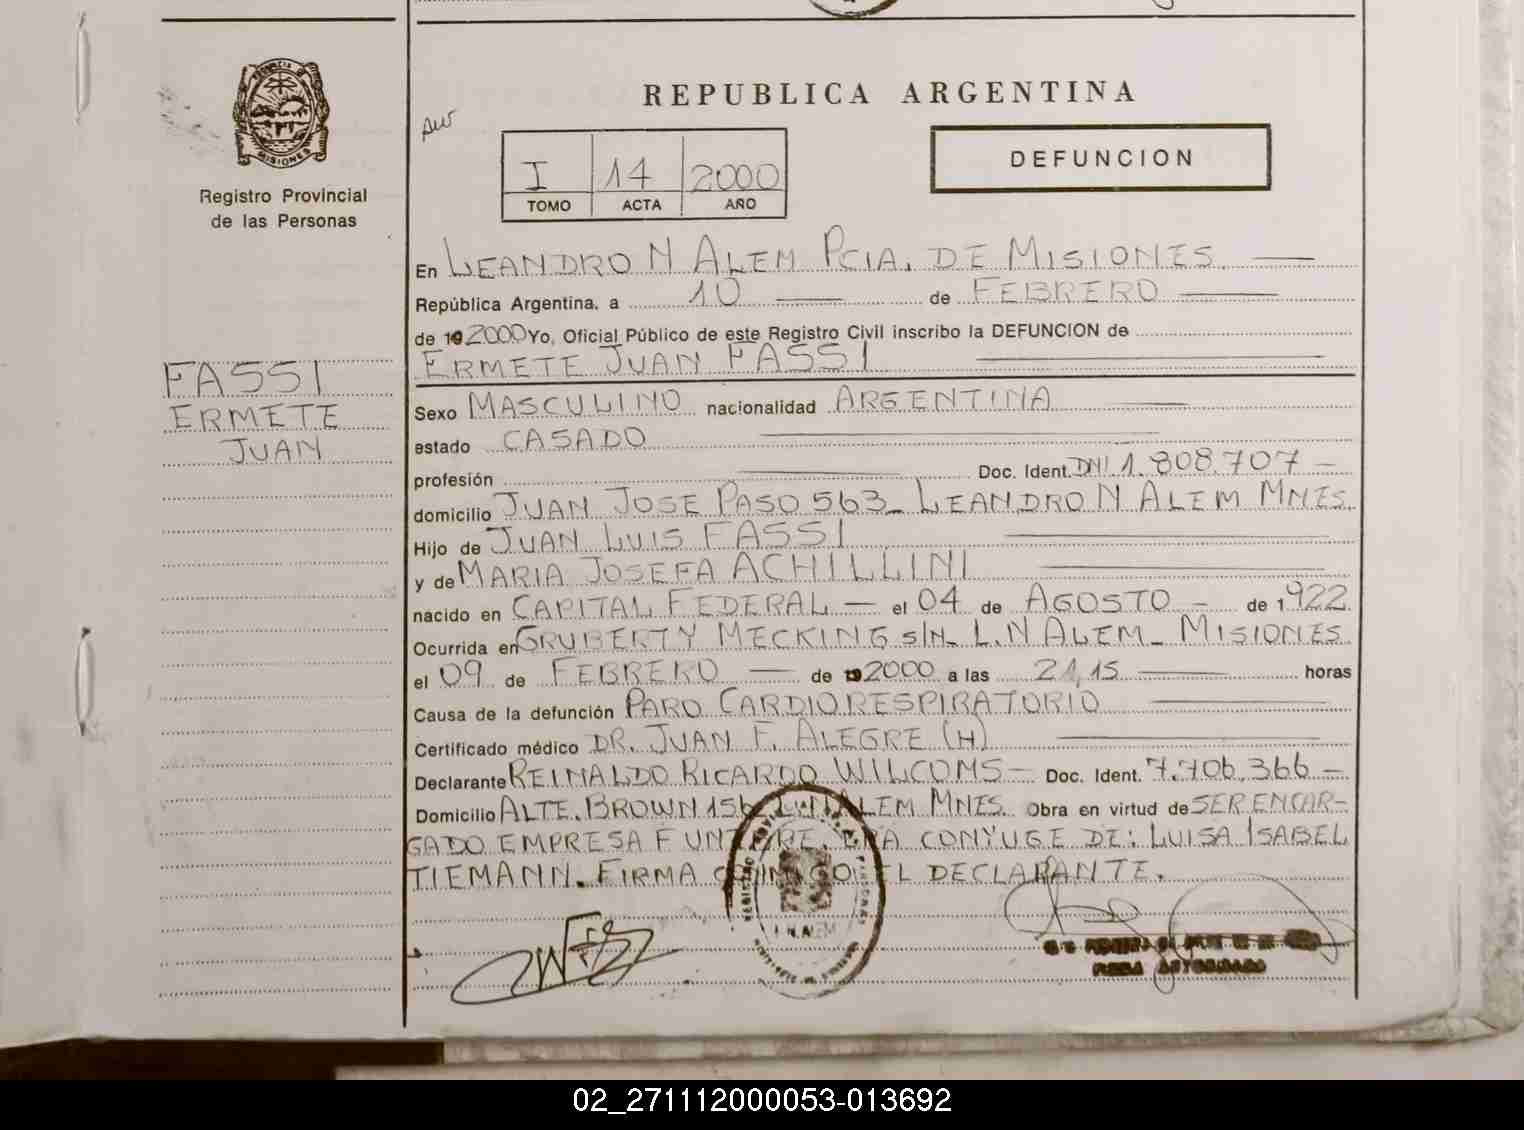 PROVINCIA D
MISIONES
Registro Provincial
de las Personas
FASSI
ERMETE
JUAN
REPUBLICA ARGENTINA
I 14 2000
TOMO ACTA AÑO
DEFUNCION
En LEANDRO N ALEM PCIA. DE MISIONES
República Argentina, a 10 de FEBRERO
de 192000 Yo, Oficial Público de este Registro Civil inscribo la DEFUNCION de
ERMETE JUAN FASSI
Sexo MASCULINO nacionalidad ARGENTINA
estado CASADO
profesión Doc. Ident. DNI 1.808.707 -
domicilio JUAN JOSE PASO 563_ LEANDRO N ALEM MNES.
Hijo de JUAN LUIS FASSI
y de MARIA JOSEFA ACHILLINI
nacido en CAPITAL FEDERAL — el 04 de AGOSTO - de 1922
Ocurrida en GRUBERT Y MECKING S/N_ L.N ALEM_ MISIONES
el 09 de FEBRERO — de 192000 a las 21,15 horas
Causa de la defunción PARO CARDIORESPIRATORIO
Certificado médico DR. JUAN F. ALEGRE (H)
Declarante REINALDO RICARDO WILCOMS - Doc. Ident. 7.706.366 -
Domicilio ALTE. BROWN 156 L.N ALEM MNES. Obra en virtud de SER ENCAR-
GADO EMPRESA FUNEBRE. ERA CONYUGE DE: LUISA ISABEL
TIEMANN. FIRMA CONMIGO EL DECLARANTE.
FIRMA AUTORIZADO
02_271112000053-013692